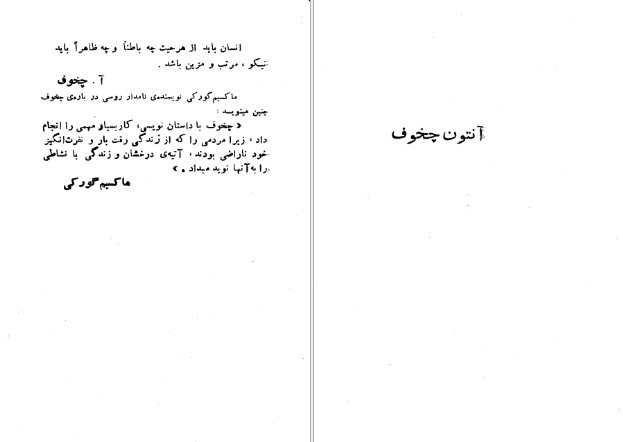 آنتون چخوف
انسان باید از هرحیث چه باطناً و چه ظاهراً باید
نیکو ، مرتب و مزین باشد .
آ . چخوف
ماکسیم‌گورکی نویسنده‌ی نامدار روسی در باره‌ی چخوف
چنین مینویسد :
« چخوف با داستان نویسی، کاربسیار مهمی را انجام
داد ، زیرا مردمی را که از زندگی رقت بار و نفرت‌انگیز
خود ناراضی بودند ، آتیه‌ی درخشان و زندگی با نشاطی
را به‌آنها نوید میداد . »
ماکسیم‌گورکی